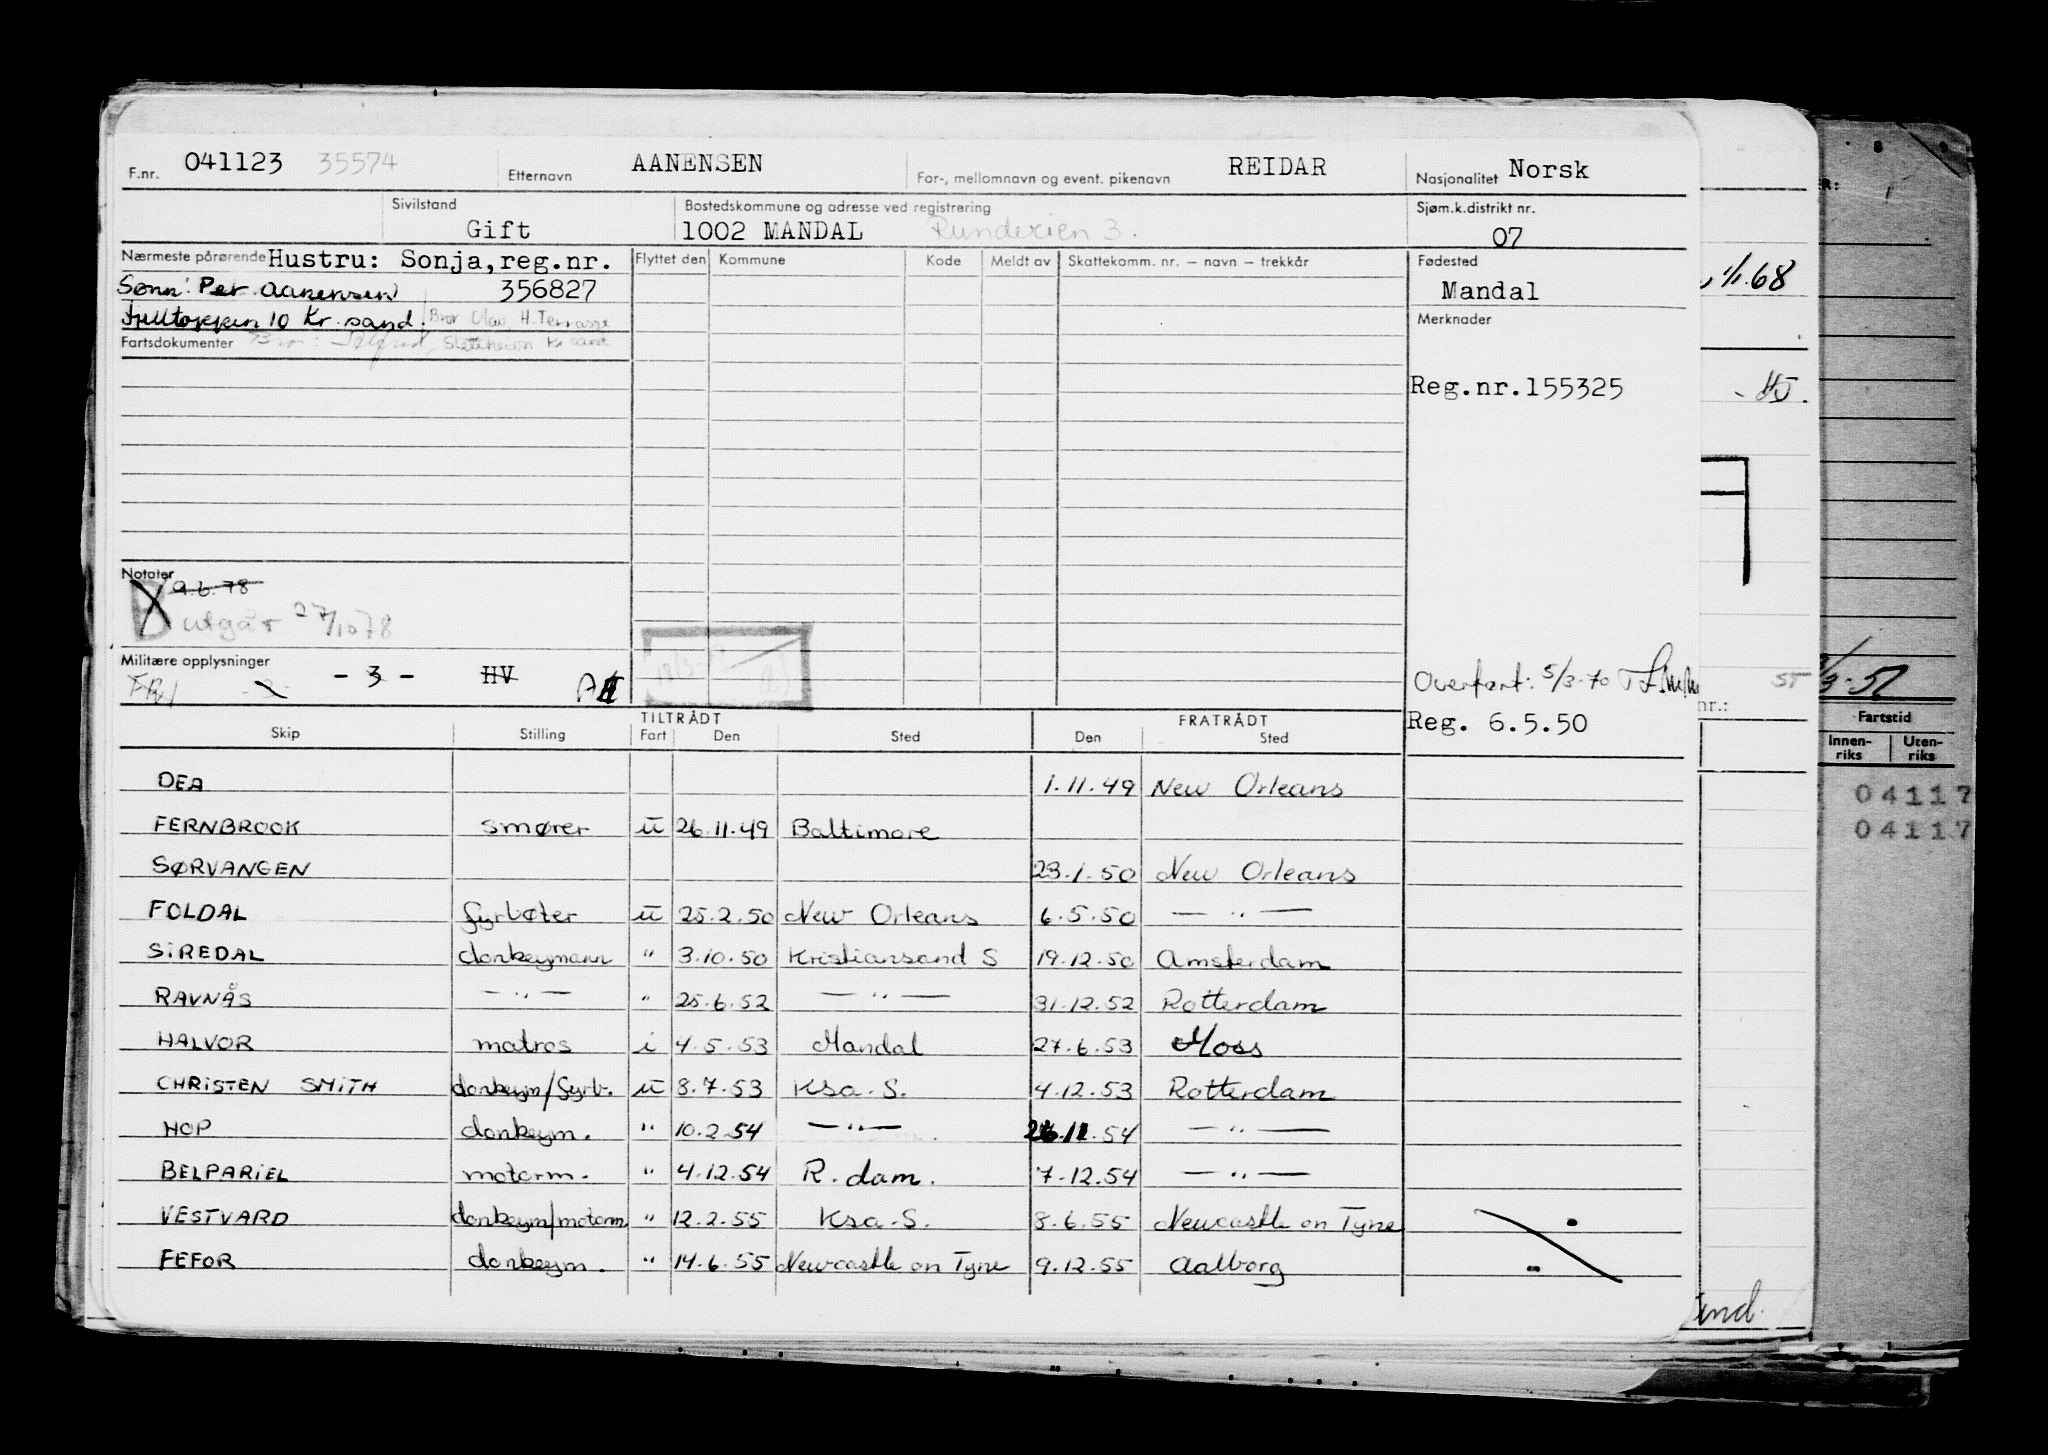 F.nr. 041123 35574 Etternavn AANENSEN For-, mellomnavn og event. pikenavn REIDAR Nasjonalitet Norsk
Sivilstand Gift Bostedskommune og adresse ved registrering 1002 MANDAL Sjøm.k.distrikt nr. 07
Nærmeste pårørende Hustru: Sonja, reg.nr. Flyttet den Kommune Kode Meldt av Skattekomm. nr. — navn — trekkår Fødested
Sønn: Per Aanensen 356827 Mandal
10 Kr. sand. Bror Olav H. Terrasse Merknader
Fartsdokumenter Bror: Kr sand
Reg.nr.155325
Notater
9.6.78
utgår 27/10 78
Militære opplysninger - 3 - HV
Overfart: 5/3-70
Reg. 6.5.50
TILTRÅDT FRATRÅDT
Skip Stilling Fart Den Sted Den Sted
DEA 1.11.49 New Orleans
FERNBROOK smører u 26.11.49 Baltimore
SØRVANGEN 23.1.50 New Orleans
FOLDAL fyrbøter u 25.2.50 New Orleans 6.5.50 — " —
SIREDAL donkeymann " 3.10.50 Kristiansand S 19.12.50 Amsterdam
RAVNÅS — " — " 25.6.52 — " — 31.12.52 Rotterdam
HALVOR matros i 4.5.53 Mandal 27.6.53 Moss
CHRISTEN SMITH donkeym/fyrb. u 8.7.53 Ksa. S. 4.12.53 Rotterdam
HOP donkeym. " 10.2.54 — " — 26.11.54 — " —
BELPARIEL motorm. " 4.12.54 R.dam. 7.12.54 — " —
VESTVARD donkeym/motorm " 12.2.55 Ksa. S. 8.6.55 Newcastle on Tyne
FEFOR donkeym. " 14.6.55 Newcastle on Tyne 9.12.55 Aalborg
1/1.68
nr.:
55
3-52
Fartstid
Innen-riks Uten-riks
04117
04117